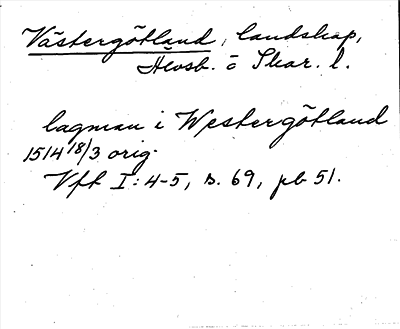 Västergötland, landskap,
Älvsb. o Skar. l.
lagman i Westergötland
1514 18/3 orig.
Vft I: 4-5, s. 69, pb 51.